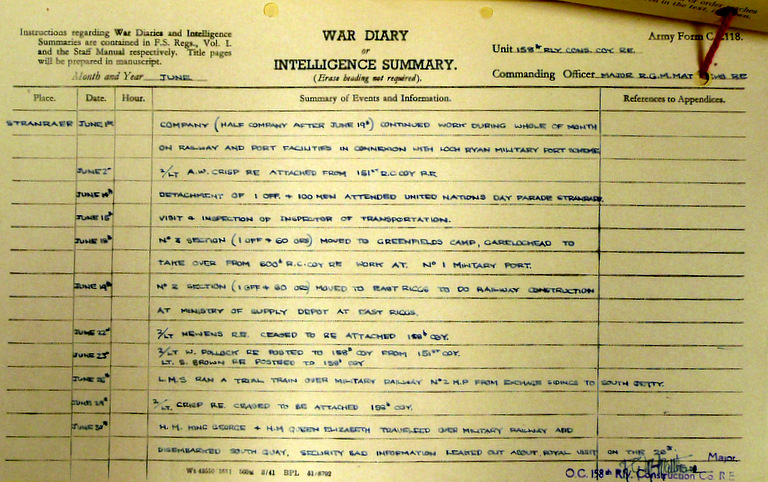 Instructions regarding War Diaries and Intelligence
Summaries are contained in F.S. Regs., Vol. I.
and the Staff Manual respectively. Title pages
will be prepared in manuscript.
Month and Year JUNE
WAR DIARY
or
INTELLIGENCE SUMMARY.
(Erase heading not required).
Army Form C. 2118.
Unit 158th RLY. CONS. COY RE.
Commanding Officer MAJOR R.G.M. RE
Place. Date. Hour. Summary of Events and Information. References to Appendices.
STRANRAER JUNE 1st COMPANY (HALF COMPANY AFTER JUNE 19th) CONTINUED WORK DURING WHOLE OF MONTH
ON RAILWAY AND PORT FACILITIES IN CONNEXION WITH LOCH RYAN MILITARY PORT SCHEME
JUNE 2nd 2/LT A.W. CRISP RE ATTACHED FROM 151st R.C COY R.E
JUNE 14th DETACHMENT OF 1 OFF. + 100 MEN ATTENDED UNITED NATIONS DAY PARADE STRANRAER.
JUNE VISIT & INSPECTION OF INSPECTOR OF TRANSPORTATION.
JUNE No SECTION (1 OFF + 60 ORS) MOVED TO GREENFIELDS CAMP, GARELOCHEAD TO
TAKE OVER FROM R.C. COY RE WORK AT. No 1 MILITARY PORT.
JUNE 19th No 2 SECTION (1 OFF + 60 OR) MOVED TO EAST RIGGS TO DO RAILWAY CONSTRUCTION
AT MINISTRY OF SUPPLY DEPOT AT EAST RIGGS.
JUNE 22nd 2/LT R.E. CEASED TO BE ATTACHED 158th COY.
JUNE 23rd 2/LT W. POLLOCK RE POSTED TO 158th COY FROM 151st COY.
LT. S. BROWN RE POSTED TO 158th COY
JUNE L.M.S RAN A TRIAL TRAIN OVER MILITARY RAILWAY No 2 M.P FROM EXCHANGE SIDINGS TO SOUTH JETTY.
JUNE 2/LT. CRISP R.E. CEASED TO BE ATTACHED 158th COY.
JUNE 30th H.M. KING GEORGE + H.M QUEEN ELIZABETH TRAVELLED OVER MILITARY RAILWAY AND
DISEMBARKED SOUTH QUAY, SECURITY BAD INFORMATION LEAKED OUT ABOUT ROYAL VISIT ON THE
Major.
O.C. 158th Rly. Construction Co. R.E